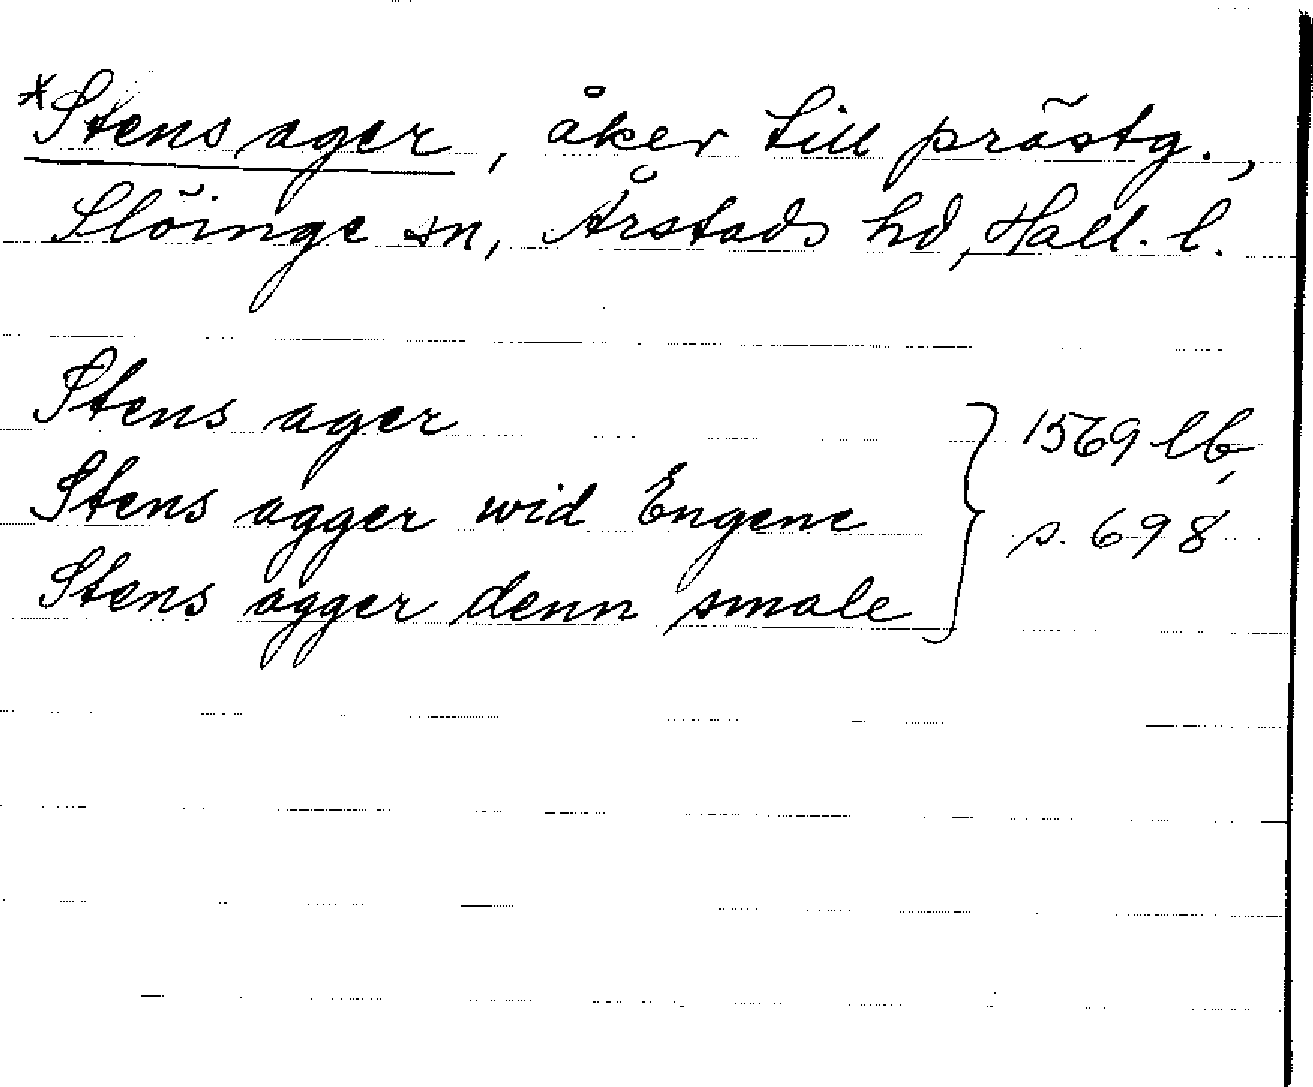 *Stens ager, åker till prästg.,
Slöinge sn, Årstads hd, Hall. l.
Stens ager
Stens agger wid Engene
Stens agger denn smale
} 1569 lb,
s. 698